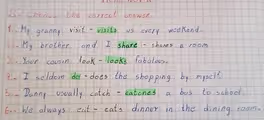 the correct answer.
1.. My granny visit - visits us every weekend.
2.. My brother and I share - shares a room
3.. Your cousin look - looks fabulous.
4.. I seldom do - does the shopping by myself.
5.. Danny usually catch - catches a bus to school.
6.. We always eat - eats dinner in the dining room.